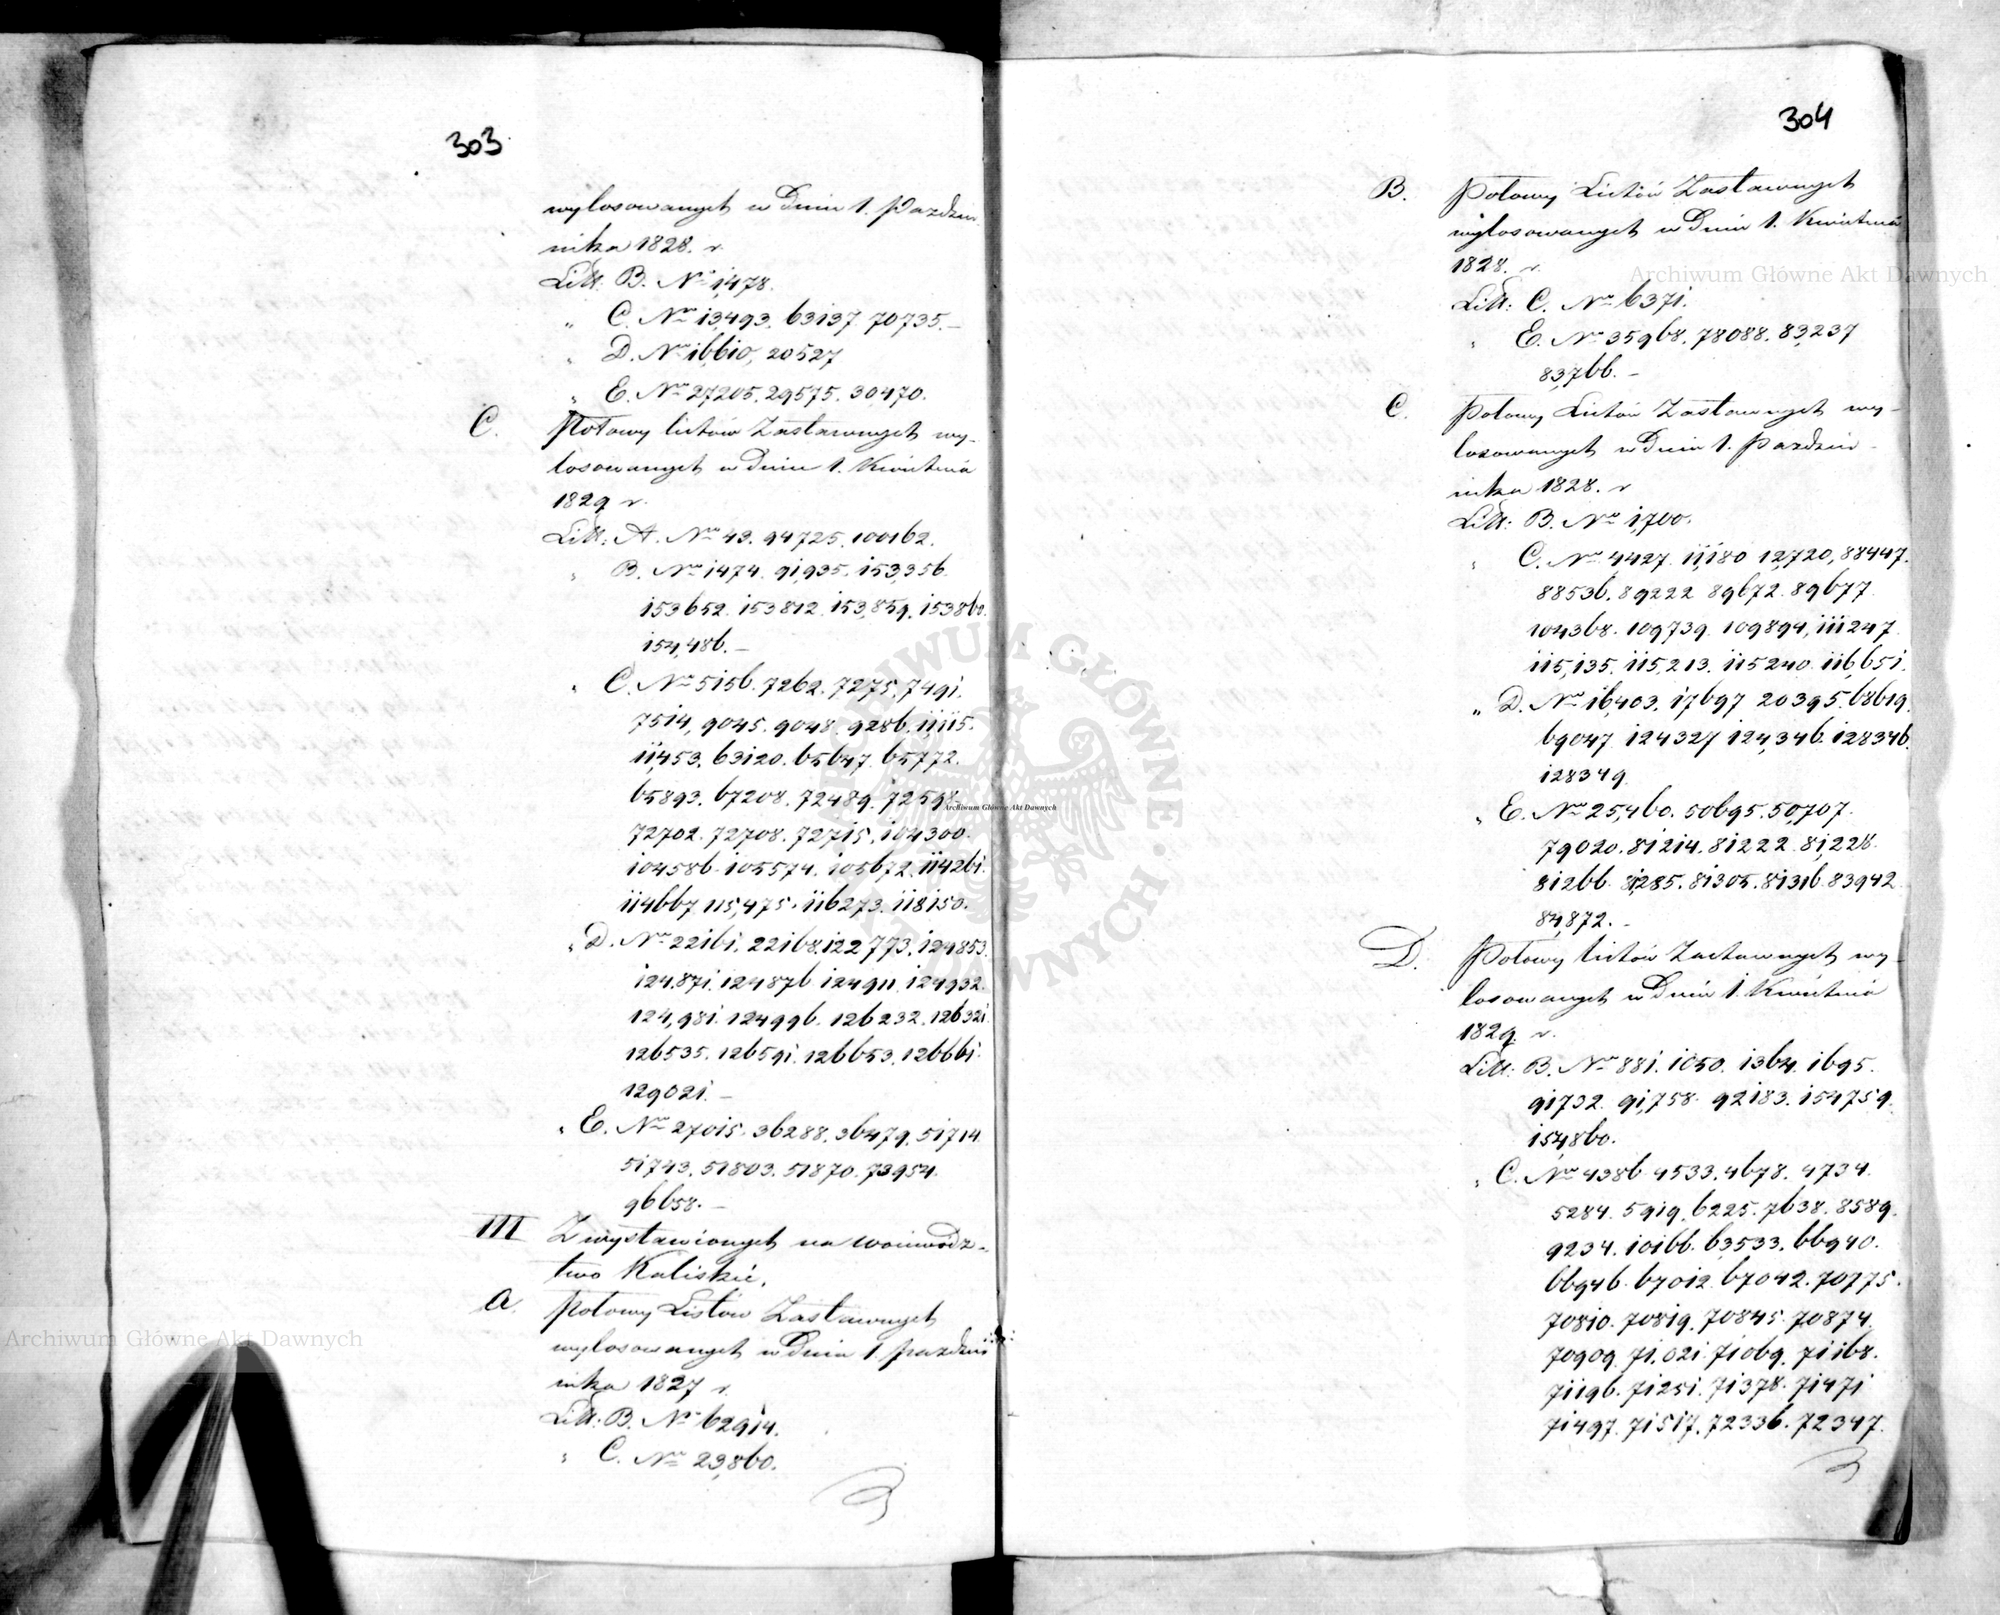 303
wylosowanych w Dniu 1. Pazdzier
nika 1828. r
Litt: B. Nº 1,478.
" C. Nro 13,493. 63137. 70735.—
" D. Nro 16,610, 20527
" E. Nro 27,205. 29575. 30,470.
C. Połowy listów Zastawnych wy-
losowanych w Dniu 1. Kwietnia
1829 r.
Litt: A. Nro 43. 94725. 100162.
" B. Nro 1474. 91,935. 153,356.
153652. 153812. 153,859. 153860.
154,486.—
" C. Nro 5156. 7262. 7275. 7491.
7514, 9045. 9048. 9286. 11,115.
11,453. 63120. 65647. 65772.
65893. 67208. 72489. 72598.
72702. 72708. 72715. 104300.
104586. 105574. 105672. 114261.
114667. 115,475. 116273. 118150.
" D. Nro 22161. 22168. 122773. 124853.
124,871. 124876. 124911. 124932.
124,981. 124996. 126232. 126321.
126535. 126591. 126653. 126661.
129021.—
" E. Nro 27015. 36288. 36479. 51714.
51743. 51803. 51870. 73954.
96658.—
III Z wystawionych na Woiewódz-
two Kaliskie.
A. Połowy Listów Zastawnych
wylosowanych w Dniu 1. Pazdzier
nika 1827 r.
Litt: B. Nº 62914.
" C. Nro 23,860.
304
B. Połowy Listów Zastawnych
wylosowanych w Dniu 1. Kwietnia
1828. r.
Litt: C. Nro 6371.
" E. Nro 35968. 78088. 83,237
83,766.—
C. Połowy Listów Zastawnych wy-
losowanych w Dniu 1. Pazdzier-
nika 1828. r
Litt: B. Nro 1,700.
" C. Nro 4427. 11,180 12,720, 88447.
88536. 89222 89672. 89677
104368. 109739. 109894, 111247.
115,135. 115,213. 115240. 116,651.
" D. Nro 16,403. 17,697 20395. 68619.
69047 124327 124,346. 128346.
128349.
" E. Nro 25,460. 50695. 50,707.
79020. 81214. 81222. 81,228.
81266. 81,285. 81305. 81316. 83942.
84,872.—
D. Połowy listów Zastawnych wy-
losowanych w Dniu 1. Kwietnia
1829 r.
Litt: B. Nro 881. 1050. 1364. 1695.
91732. 91,758. 92183. 154759.
154,860.
" C. Nro 4386. 4533. 4678. 4734.
5284. 5919. 6225. 7638. 8589.
9234. 10166. 63533. 66940.
66946. 67012. 67042. 70775.
70810. 70819. 70845. 70874.
70909. 71,021. 71069. 71168.
71196. 71251. 71378. 71471
71497. 71517. 72336. 72347.
Archiwum Główne Akt Dawnych
Archiwum Główne Akt Dawnych
Archiwum Główne Akt Dawnych
ARCHIWUM GŁÓWNE AKT DAWNYCH